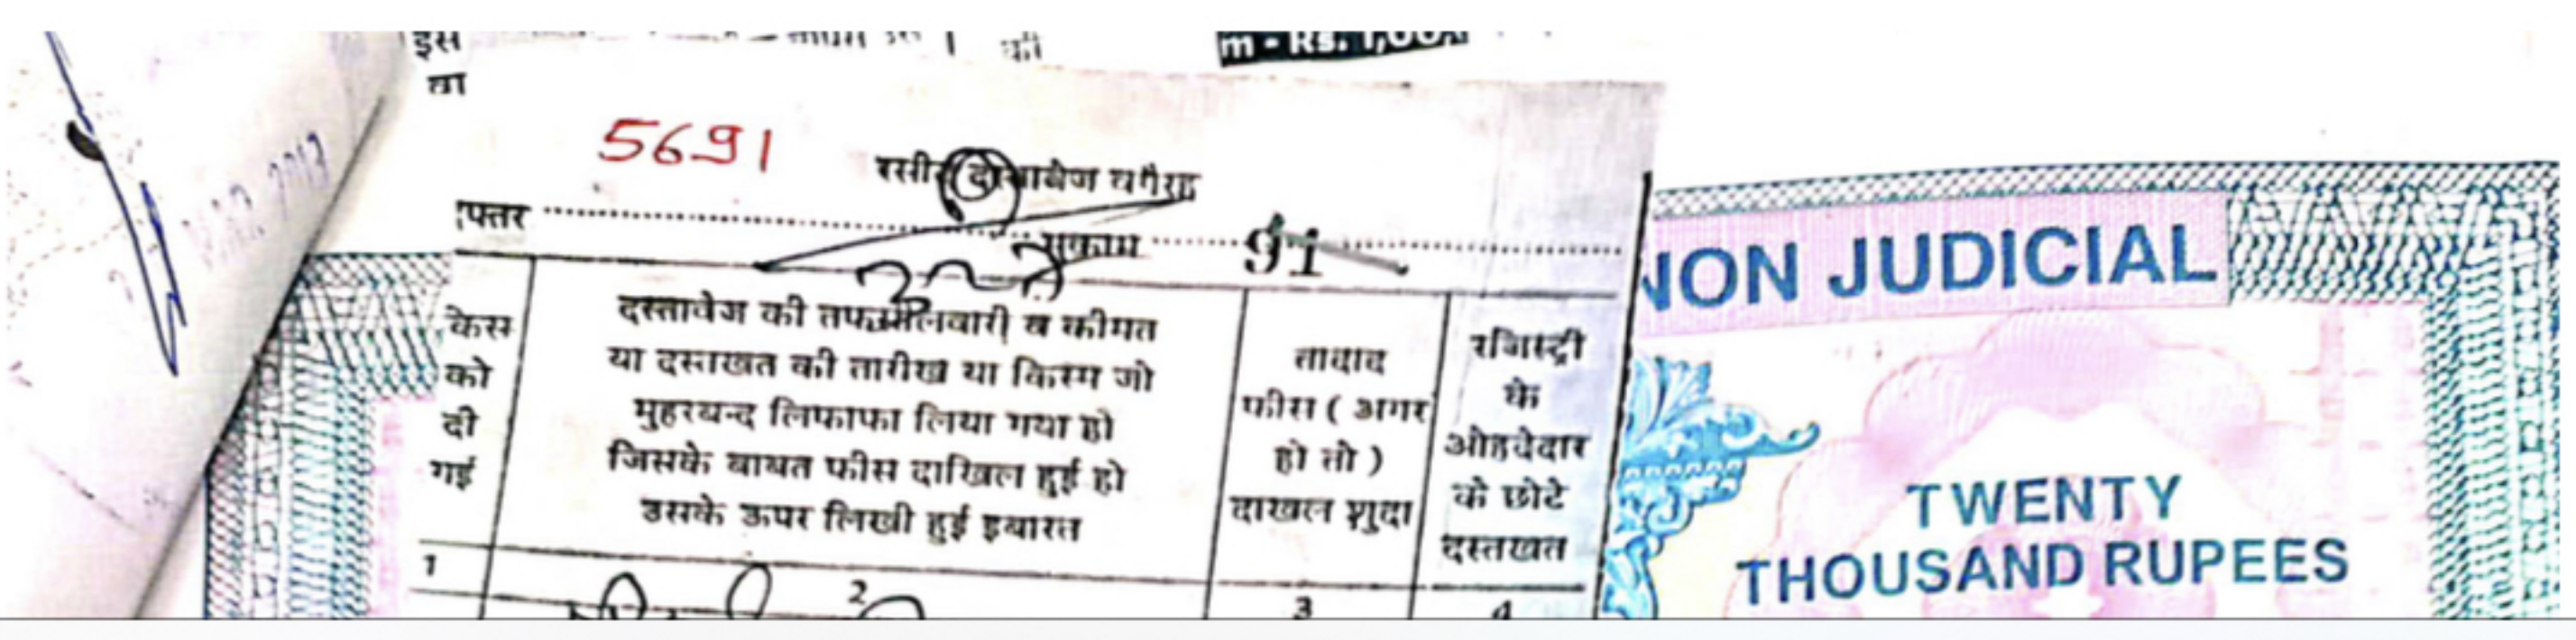 इस
की
m - Rs. 1,00
वा
5691
रसीद दस्तावेज वगैरह
फ्तर
मुकाम
91
केस
को
दी
गई
दस्तावेज की तफसीलवारी व कीमत
या दस्तखत की तारीख या किस्म जो
मुहरबन्द लिफाफा लिया गया हो
जिसके बाबत फीस दाखिल हुई हो
उसके ऊपर लिखी हुई इबारत
तादाद
फीस ( अगर
हो तो )
दाखल शुदा
रजिस्ट्री
के
ओहदेदार
के छोटे
दस्तखत
1
2
3
4
NON JUDICIAL
TWENTY
THOUSAND RUPEES